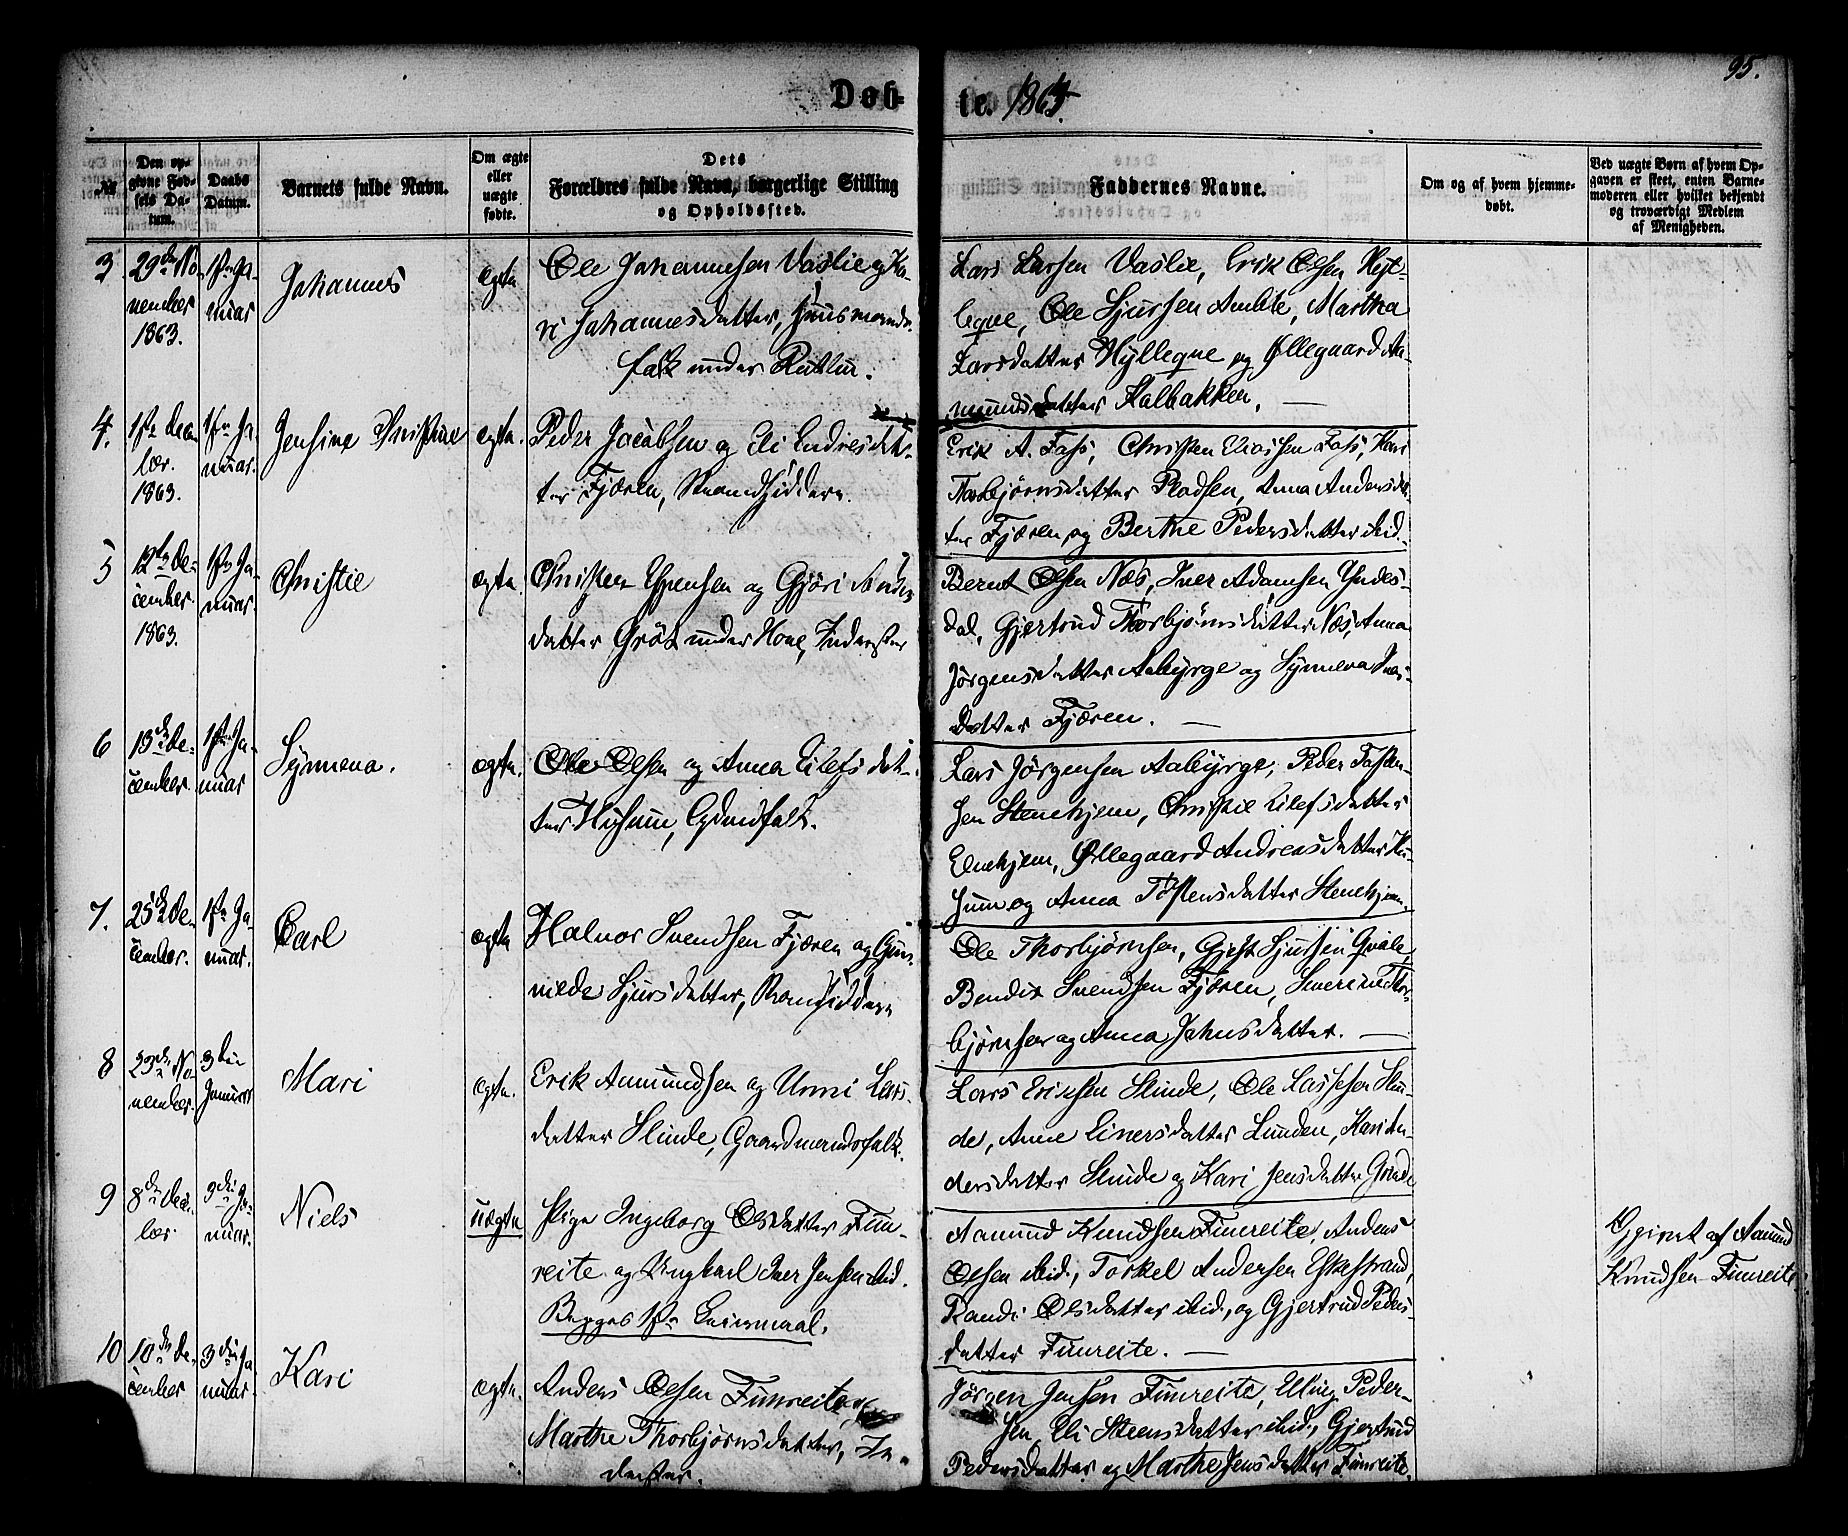 95.
Døb-
te. 1864.
№
Den op-
givne Fød-
sels Da-
tum.
Daabs
Datum.
Barnets fulde Navn.
Om ægte
eller
uægte
fødte.
Dets
Forældres fulde Navn, borgerlige Stilling
og Opholdssted.
Faddernes Navne.
Om og af hvem hjemme-
døbt.
Ved uægte Børn af hvem Op-
gaven er skeet, enten Barne-
moderen eller hvilket bekjendt
og troværdigt Medlem
af Menigheden.
3
29de No-
vember
1863.
1ste Ja-
nuar
Johannes
ægte
Ole Johannesen Vaslie og Ka-
ri Johannesdatter, Huusmands-
folk under Rutlin.
Lars Larsen Vaslie, Erik Olsen Hyl-
leque, Ole Sjursen Amble, Martha
Larsdatter Hylleque og Øllegaard Aa-
mundsdatter Kalbakken.
4.
1ste Decem-
ber.
1863.
1ste Ja-
nuar.
Jensine Christine
ægte.
Peder Jacobsen og Eli Endresdat-
ter Fjæren, Strandsiddere.
Erik A. Foss, Christen Eliassen Foss, Kari
Thorbjørnsdatter Pladsen, Anna Andersdat-
ter Fjæren og Berthe Pedersdatter ibid.
5
12te De-
cember.
1863.
1ste Ja-
nuar.
Christie
ægte.
Christen Espensen og Gjøri Anders-
datter Grøt under Hove, Inderster
Bernt Olsen Næs, Iver Adamsen Yndes-
dal, Gjertrud Thorbjørnsdatter Næs, Anna
Jørgensdatter Aabyrge og Synneva Iver-
datter Fjæren.
6
13de De-
cember.
1ste Ja-
nuar
Synneva.
ægte.
Ole Olsen og Anna Eilefsdat-
ter Husum, Gaardfolk.
Lars Jørgensen Aabyrge, Peder Tosten-
sen Stenehjem, Christie Eilefsdatter
Stenehjem, Øllegaard Andreasdatter Hu-
sum og Anna Tostensdatter Stenehjem.
7.
25de De-
cember.
1ste Ja-
nuar.
Carl
ægte
Halvor Svendsen Fjæren og Gun-
nilde Sjursdatter, Strandsiddere
Ole Thorbjørnsen, Gjest Sjursen Qvale,
Bendix Svendsen Fjæren, Severine Thor-
bjørnsen og Anna Johnsdatter.
8
23de No-
vember.
3die
Januar
Mari
ægte.
Erik Aamundsen og Unni Lars-
datter Slinde, Gaardmandsfolk.
Lars Eriksen Slinde, Ole Lassesen Slin-
de, Anne Einersdatter Lunden, Kari An-
dersdatter Slinde og Kari Jensdatter Grinde
9
8de Decem-
ber.
3die Ja-
nuar.
Niels
uægte
Pige Ingeborg Olsdatter Fim-
reite og Ungkarl Iver Jensen ibid.
Begges 1ste Leiermaal.
Aamund Knudsen Fimreite, Anders
Olsen ibid., Torkel Andersen Eskestrand,
Randi Olsdatter ibid., og Gjertrud Peders-
datter Fimreite.
Opgivet af Aamund
Knudsen Fimreite
10
10de De-
cember
3die Ja-
nuar.
Kari
ægte.
Anders Olsen Fimreite og
Marthe Thorbjørnsdatter, In-
derster.
Jørgen Jensen Fimreite, Elling Peder-
sen, Eli Steensdatter ibid., Gjertrud
Pedersdatter og Marthe Jensdatter Fimreite.